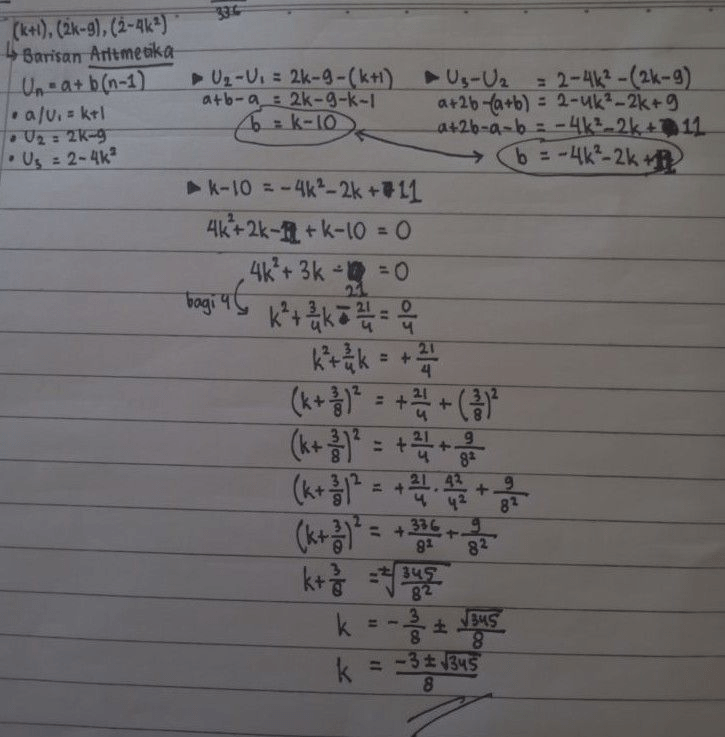 336
(k+1), (2k-9), (2-4k²)
↳ Barisan Aritmetika
Un = a + b(n-1)
• a/U₁ = k+1
• U₂ = 2k-9
• U₃ = 2-4k²
▶ U₂-U₁ = 2k-9-(k+1)
a+b-a = 2k-9-k-1
b = k-10
▶ U₃-U₂ = 2-4k²-(2k-9)
a+2b-(a+b) = 2-4k²-2k+9
a+2b-a-b = -4k²-2k+11
b = -4k²-2k+11
▶ k-10 = -4k²-2k+11
4k²+2k-11+k-10 = 0
4k²+3k-21 = 0
bagi 4 ↘ k²+3/4k-21/4 = 0/4
k²+3/4k = +21/4
(k+3/8)² = +21/4+(3/8)²
(k+3/8)² = +21/4+9/8²
(k+3/8)² = +21/4·4²/4²+9/8²
(k+3/8)² = +336/8²+9/8²
k+3/8 = ±√(345/8²)
k = -3/8 ± √345/8
k = (-3±√345)/8